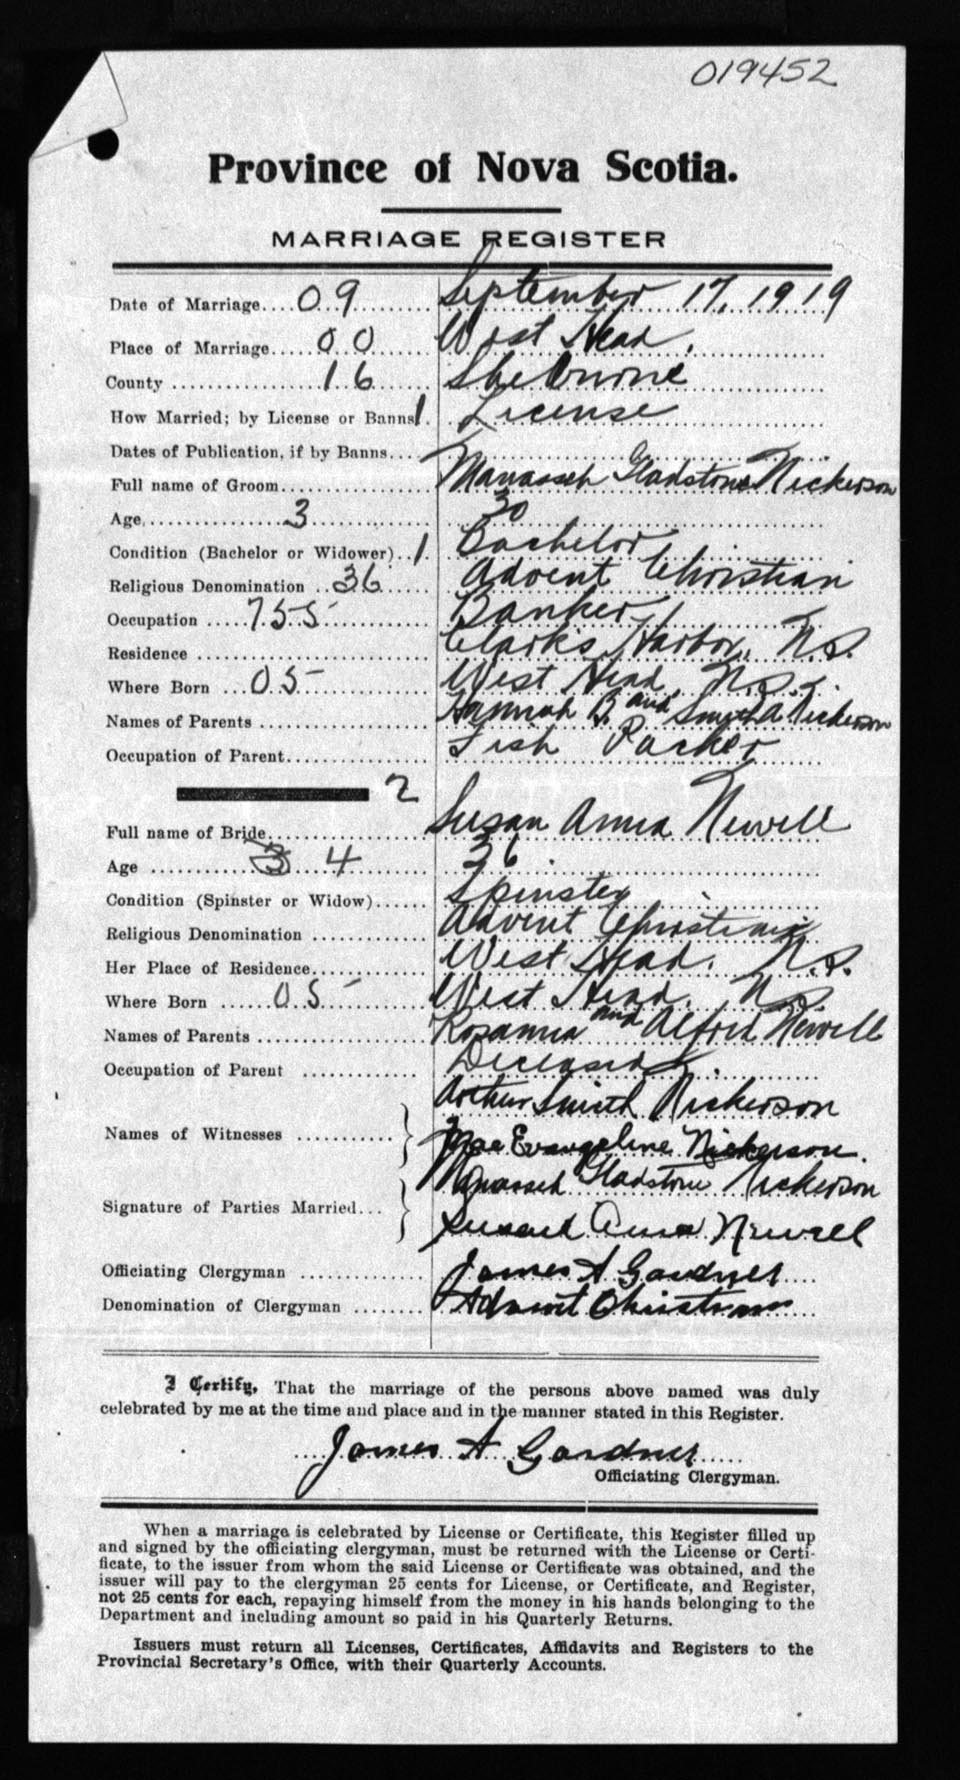 019452
Province of Nova Scotia.
MARRIAGE REGISTER
Date of Marriage....09......... September 17, 1919
Place of Marriage.....00...... West Head.
County ...............16...... Shelburne
How Married; by License or Banns 1. License
Dates of Publication, if by Banns....
Full name of Groom............... Manasseh Gladstone Nickerson
Age...............3............ 30
Condition (Bachelor or Widower)..1 Bachelor
Religious Denomination ..36..... Advent Christian
Occupation ....755........... Banker
Residence ....................... Clark's Harbor, N.S.
Where Born ...05............ West Head N.S.
Names of Parents ................ Hannah B. and Smith A Nickerson
Occupation of Parent............... Fish Packer
2
Full name of Bride............... Susan Anna Newell
Age ..........3 4......... 36.
Condition (Spinster or Widow)...... Spinster
Religious Denomination ............ Advent Christian
Her Place of Residence............ West Head. N.S.
Where Born .....05......... West Head. N.S.
Names of Parents ................. Rosanna and Alfred Newell
Occupation of Parent ............ Deceased.
Arthur Smith Nickerson
Names of Witnesses ...........
Mae Evangeline Nickerson.
Manasseh Gladstone Nickerson
Signature of Parties Married...
Anna Newell
Officiating Clergyman ............. James A Gardner
Denomination of Clergyman ........ Advent Christian
I Certify, That the marriage of the persons above named was duly
celebrated by me at the time and place and in the manner stated in this Register.
James A Gardner
Officiating Clergyman.
When a marriage is celebrated by License or Certificate, this Register filled up
and signed by the officiating clergyman, must be returned with the License or Certi-
ficate, to the issuer from whom the said License or Certificate was obtained, and the
issuer will pay to the clergyman 25 cents for License, or Certificate, and Register,
not 25 cents for each, repaying himself from the money in his hands belonging to the
Department and including amount so paid in his Quarterly Returns.
Issuers must return all Licenses, Certificates, Affidavits and Registers to the
Provincial Secretary's Office, with their Quarterly Accounts.